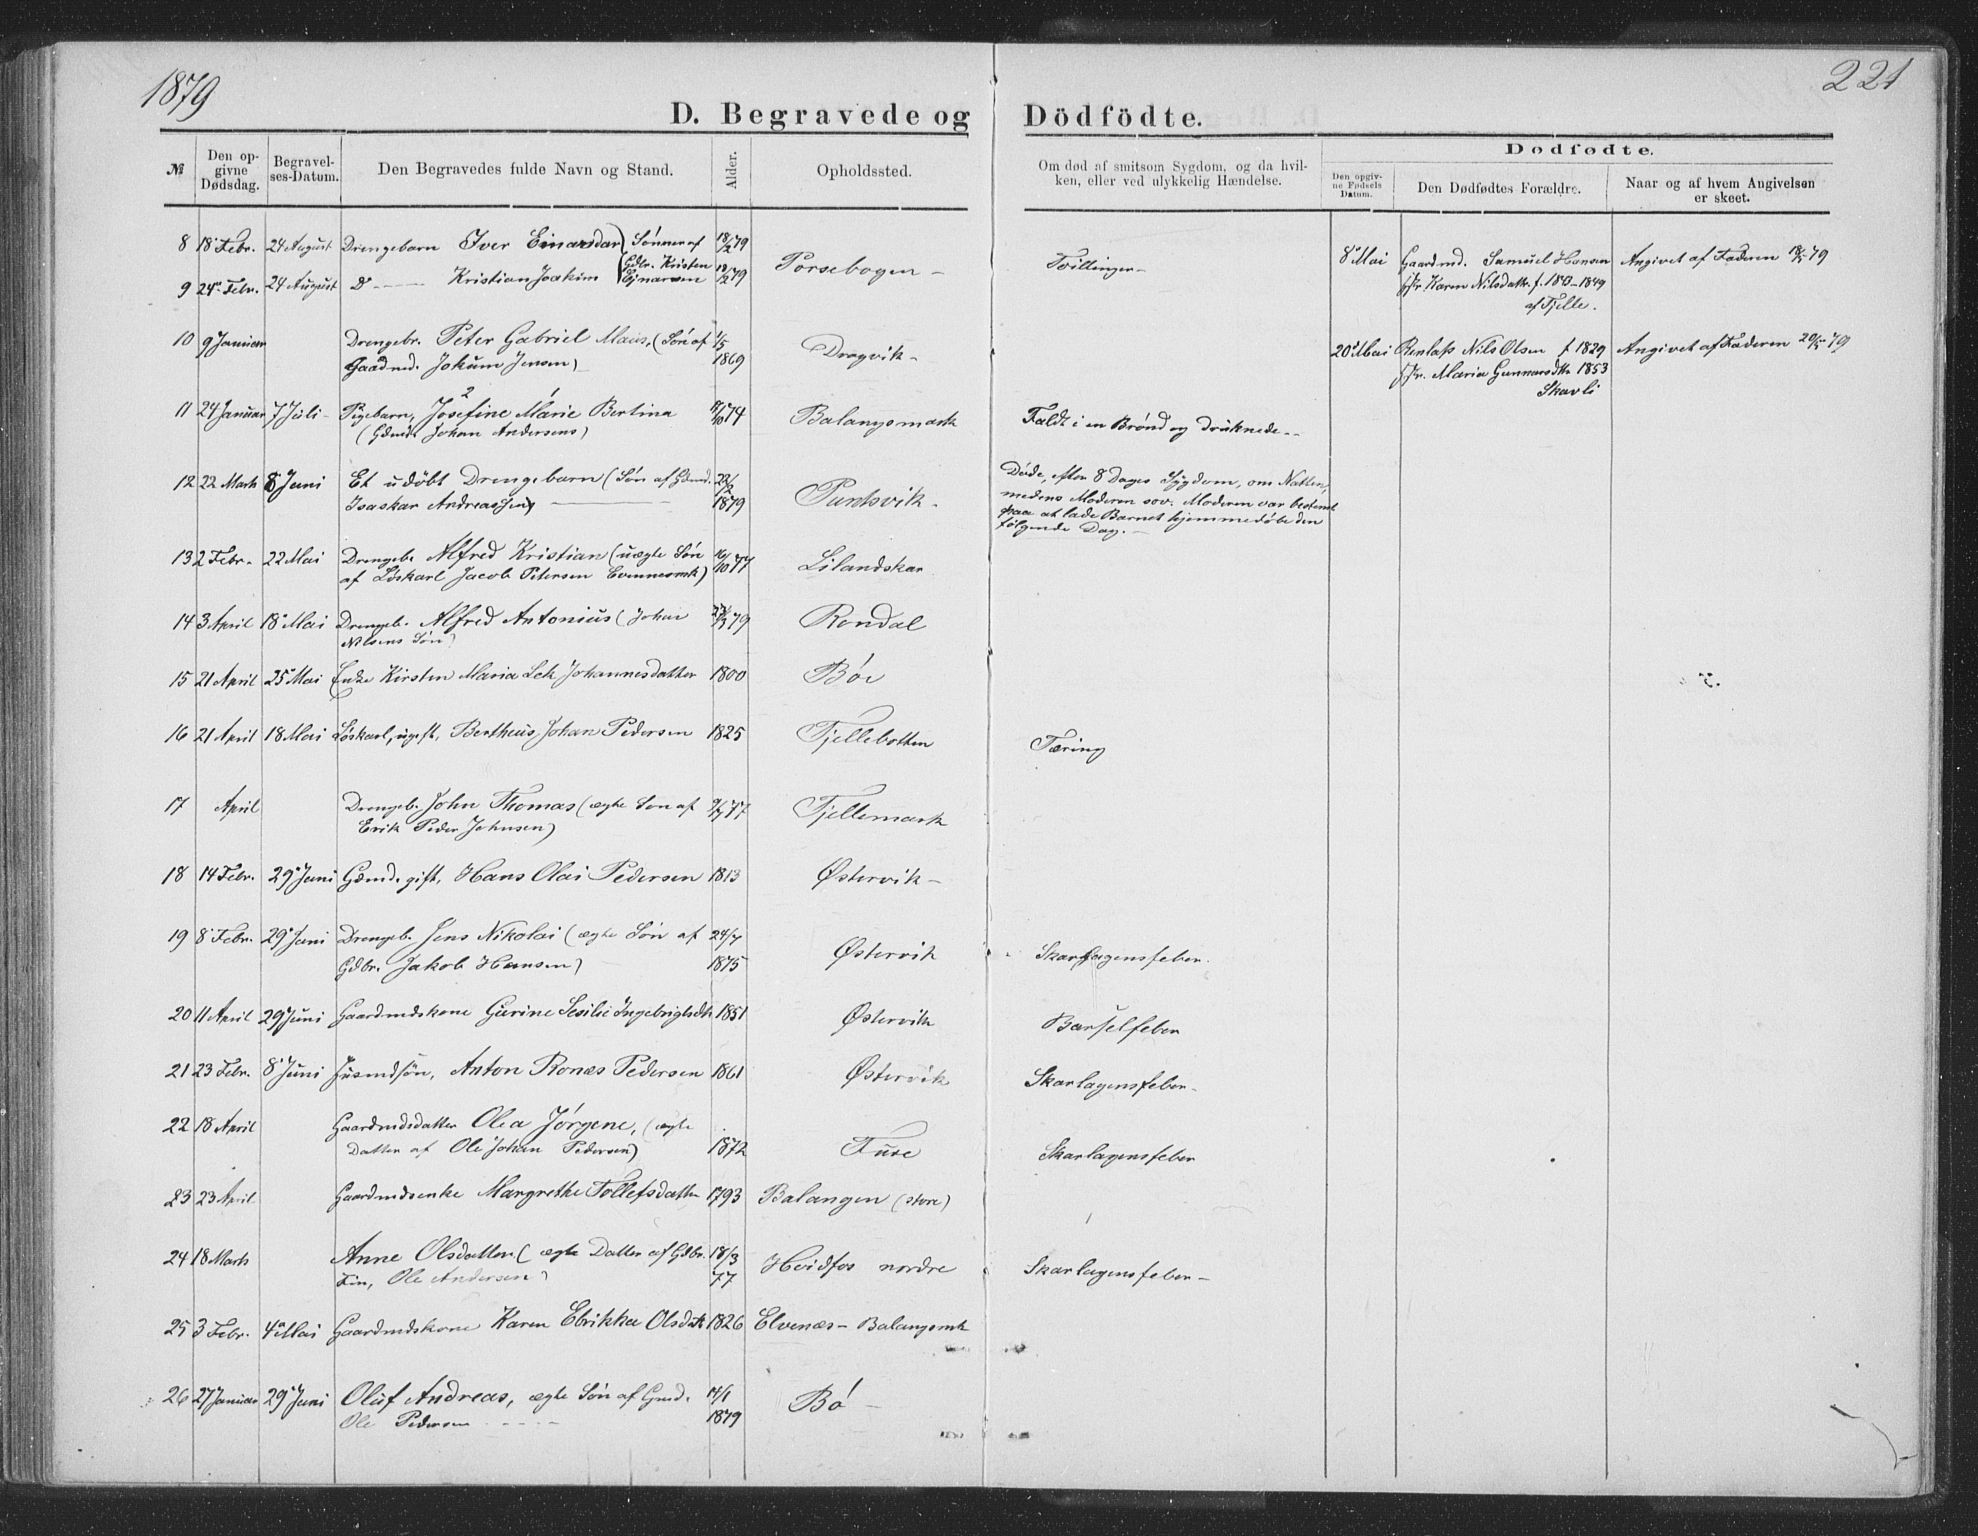 1879
221
D. Begravede og Dödfödte.
№
Den op-
givne
Dødsdag.
Begravel-
ses-Datum.
Den Begravedes fulde Navn og Stand.
Alder.
Opholdssted.
Om død af smitsom Sygdom, og da hvil-
ken, eller ved ulykkelig Hændelse.
Dødfødte.
Den opgiv-
ne Fødsels
Datum.
Den Dødfødtes Forældre.
Naar og af hvem Angivelsen
er skeet.
8 18 Febr. 24 August Drengebarn Iver Einarsdar (Sönner af 18/2 79
Gdbr. Kristen
9 24 Febr. 24 August D° Kristian Joakim Ejnarsen 18/2 79 Porsebogen - Tvillinger -
8 Mai Gaardmd. Samuel Hansen Angivet af Faderen 18/5 79
Karen Nilsdatr. f. 1840-1849
af Fjelle.
10 9 Januar Drengebr. Peter Gabriel Maus, (Søn af 1/5
Gaardmd. Jokum Jensen) 1869 Dragvik -
20 Mai Nils Olsen f 1829 Angivet af Faderen 20/5 79
Maria Gunnarsdtr 1853
Skavli
11 24 Januar 7 Juli - Pigebarn, Josefine Marie Bertina 17/10 74 Balangsmark Faldt i en Brønd og druknede --
2
(Gdmd. Johan Andersens)
12 22 Marts 8 Juni Et udöbt Drengebarn (Søn af Gdmd. 22/2
Isaskar Andreassen) 1879 Puntsvik -
Døde, efter 8 Dages Sygdom, om Natten,
medens Moderen sov. Moderen var bestemt
paa at lade Barnet hjemmedøbe den
følgende Dag. -
13 2 Febr. 22 Mai Drengeb. Alfred Kristian (uægte Søn 16/10 77 Lilandskar
af Løskarl Jacob Petersen Evenesmk)
14 3 April 18 Mai Drengeb. Alfred Antonius (Johan 79 Rondal
Nilsens Søn)
15 21 April 25 Mai Enke Kirsten Maria Johannesdatter 1800 Böi
16 21 April 18 Mai Løskarl, ugift, Bertheus Johan Pedersen 1825 Fjellebotten Tæring
17 April Drengeb. John Thomas (ægte Søn af 9/7 77 Fjellemark
Erik Peder Johnsen)
18 14 Febr. 29 Juni Gdmd. gift, Hans Olai Pedersen 1813 Østervik -
19 8 Febr. 29 Juni Drengeb. Jens Nikolai (ægte Søn af 24/7
Gdbr. Jakob Hansen) 1875 Østervik Skarlagensfeber.
20 11 April 29 Juni Gaardmdskone Gurine Sesilie Ingebrigtsdtr 1851 Østervik Barselfeber
21 23 Febr. 8 Juni Husmdsøn, Anton Ronæs Pedersen 1861 Østervik Skarlagensfeber -
22 18 April Gaardmdsdatter Olea Jørgene, (ægte
Datter af Ole Johan Pedersen) 1872 Fuse Skarlagensfeber
23 23 April Gaardmdsenke Margrethe Tollefsdatter 1793 Balangen (store)
24 18 Marts Anne Olsdatter (ægte Datter af Gdbr. 18/3
Fin, Ole Andersen) 77 Hvidfos nordre Skarlagensfeber -
25 3 Febr. 4 Mai Gaardmdskone Karen Elrikka Olsdtr 1826 Elvenæs - Balangsmk
26 27 Januar 29 Juni Oluf Andreas, ægte Søn af Gmd. 14/1
Ole Pedersen 1879 Bö -